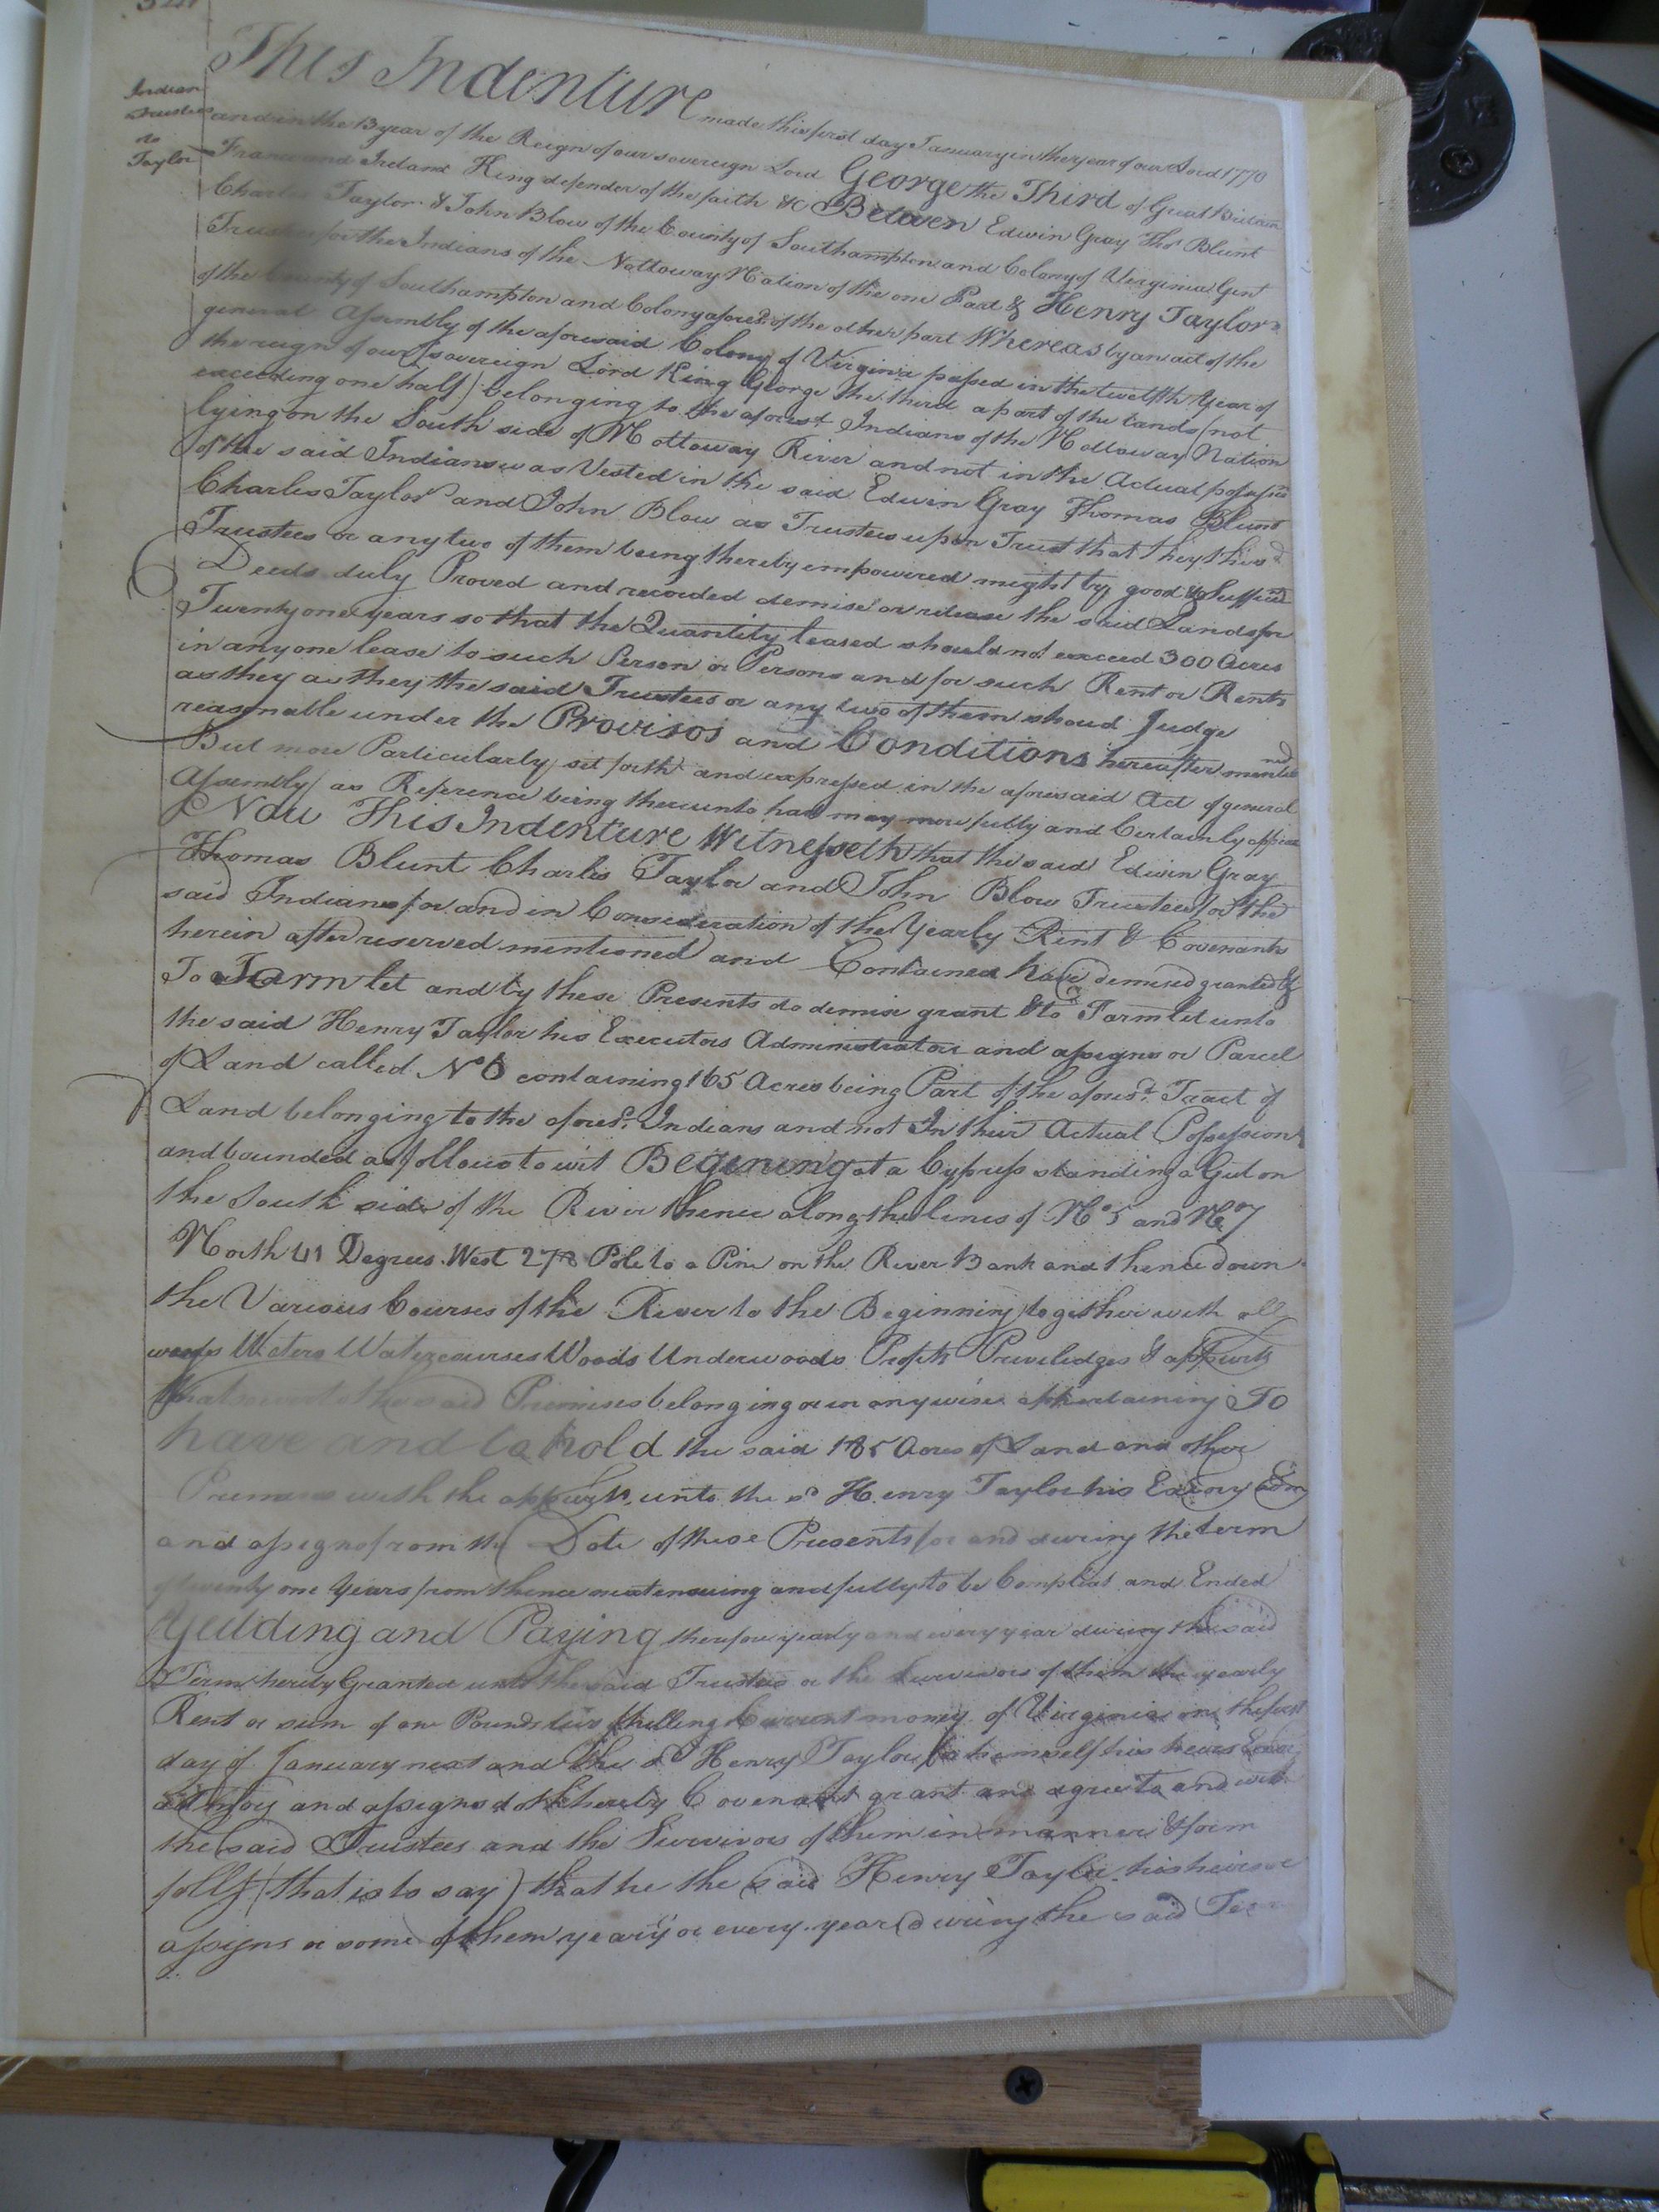 Indian
Trustees
to
Taylor
This Indenture made this first day January in the year of our Lord 1770
and in the 13 year of the Reign of our sovereign Lord George the Third of Great Britain
France and Ireland King defender of the faith &c Between Edwin Gray Thos Blunt
Charles Taylor & John Blow of the County of Southampton and Colony of Virginia Gent
Trustees for the Indians of the Nottoway Nation of the one Part & Henry Taylor
of the County of Southampton and Colony aforesd. of the other part Whereas by an act of the
general Assembly of the aforesaid Colony of Virginia passed in the twelfth Year of
the reign of our sovereign Lord King George the third a part of the Lands (not
exceeding one half) belonging to the aforesd. Indians of the Nottoway Nation
lying on the South side of Nottoway River and not in the Actual possession
of the said Indians was Vested in the said Edwin Gray Thomas Blunt
Charles Taylor and John Blow as Trustees upon Trust that they the sd
Trustees or any two of them being thereby empowered might by good & Sufficient
Deeds duly Proved and recorded demise or release the said Lands for
Twenty one years so that the Quantity leased should not exceed 300 Acres
in any one lease to such Person or Persons and for such Rent or Rents
as they as they the said Trustees or any two of them shoud Judge
reasonable under the Provisos and Conditions hereafter mentioned
But more Particularly set forth and expressed in the aforesaid Act of general
Assembly as Reference being thereunto had may more fully and Certainly appear
Now This Indenture Witnesseth that the said Edwin Gray
Thomas Blunt Charles Taylor and John Blow Trustees for the
said Indians for and in Consideration of the Yearly Rent & Covenants
herein after reserved mentioned and Contained have demised granted &
To Farm let and by these Presents do demise grant & to Farm let unto
the said Henry Taylor his Executors Administrators and assigns or Parcel
of Land called No 6 containing 165 Acres being Part of the aforesd. Tract of
Land belonging to the aforesd. Indians and not In their Actual Possession
and bounded as follows to wit Begening at a Cypress standing a Gut on
the South side of the River thence along the lines of No 5 and No 7
North 41 Degrees West 278 Pole to a Pine on the River Bank and thence down
the Various Courses of the River to the Beginning together with all
ways Waters Watercourses Woods Underwoods Profits Priviledges & appurts
whatsoever to the said Premises belonging or in any wise appertaining To
have and to hold the said 185 Acres of Land and other
Premises with the appurts. unto the sd Henry Taylor his Exors Adm
and assigns from the Date of these Presents for and during the term
of twenty one Years from thence next ensuing and fully to be Compleat and Ended
Yeilding and Paying therefore yearly and every year during the said
Term hereby Granted unto the said Trustees or the Survivors of them the yearly
Rent or sum of one Pound shilling Current money of Virginia on the first
day of January next and the sd Henry Taylor for himself his heirs Exors
and assigns doth hereby Covenant grant and agree to and with
the said Trustees and the Survivors of them in manner & form
follg (that is to say) that he the said Henry Taylor his heirs or
assigns or some of them yearly or every year during the said Term